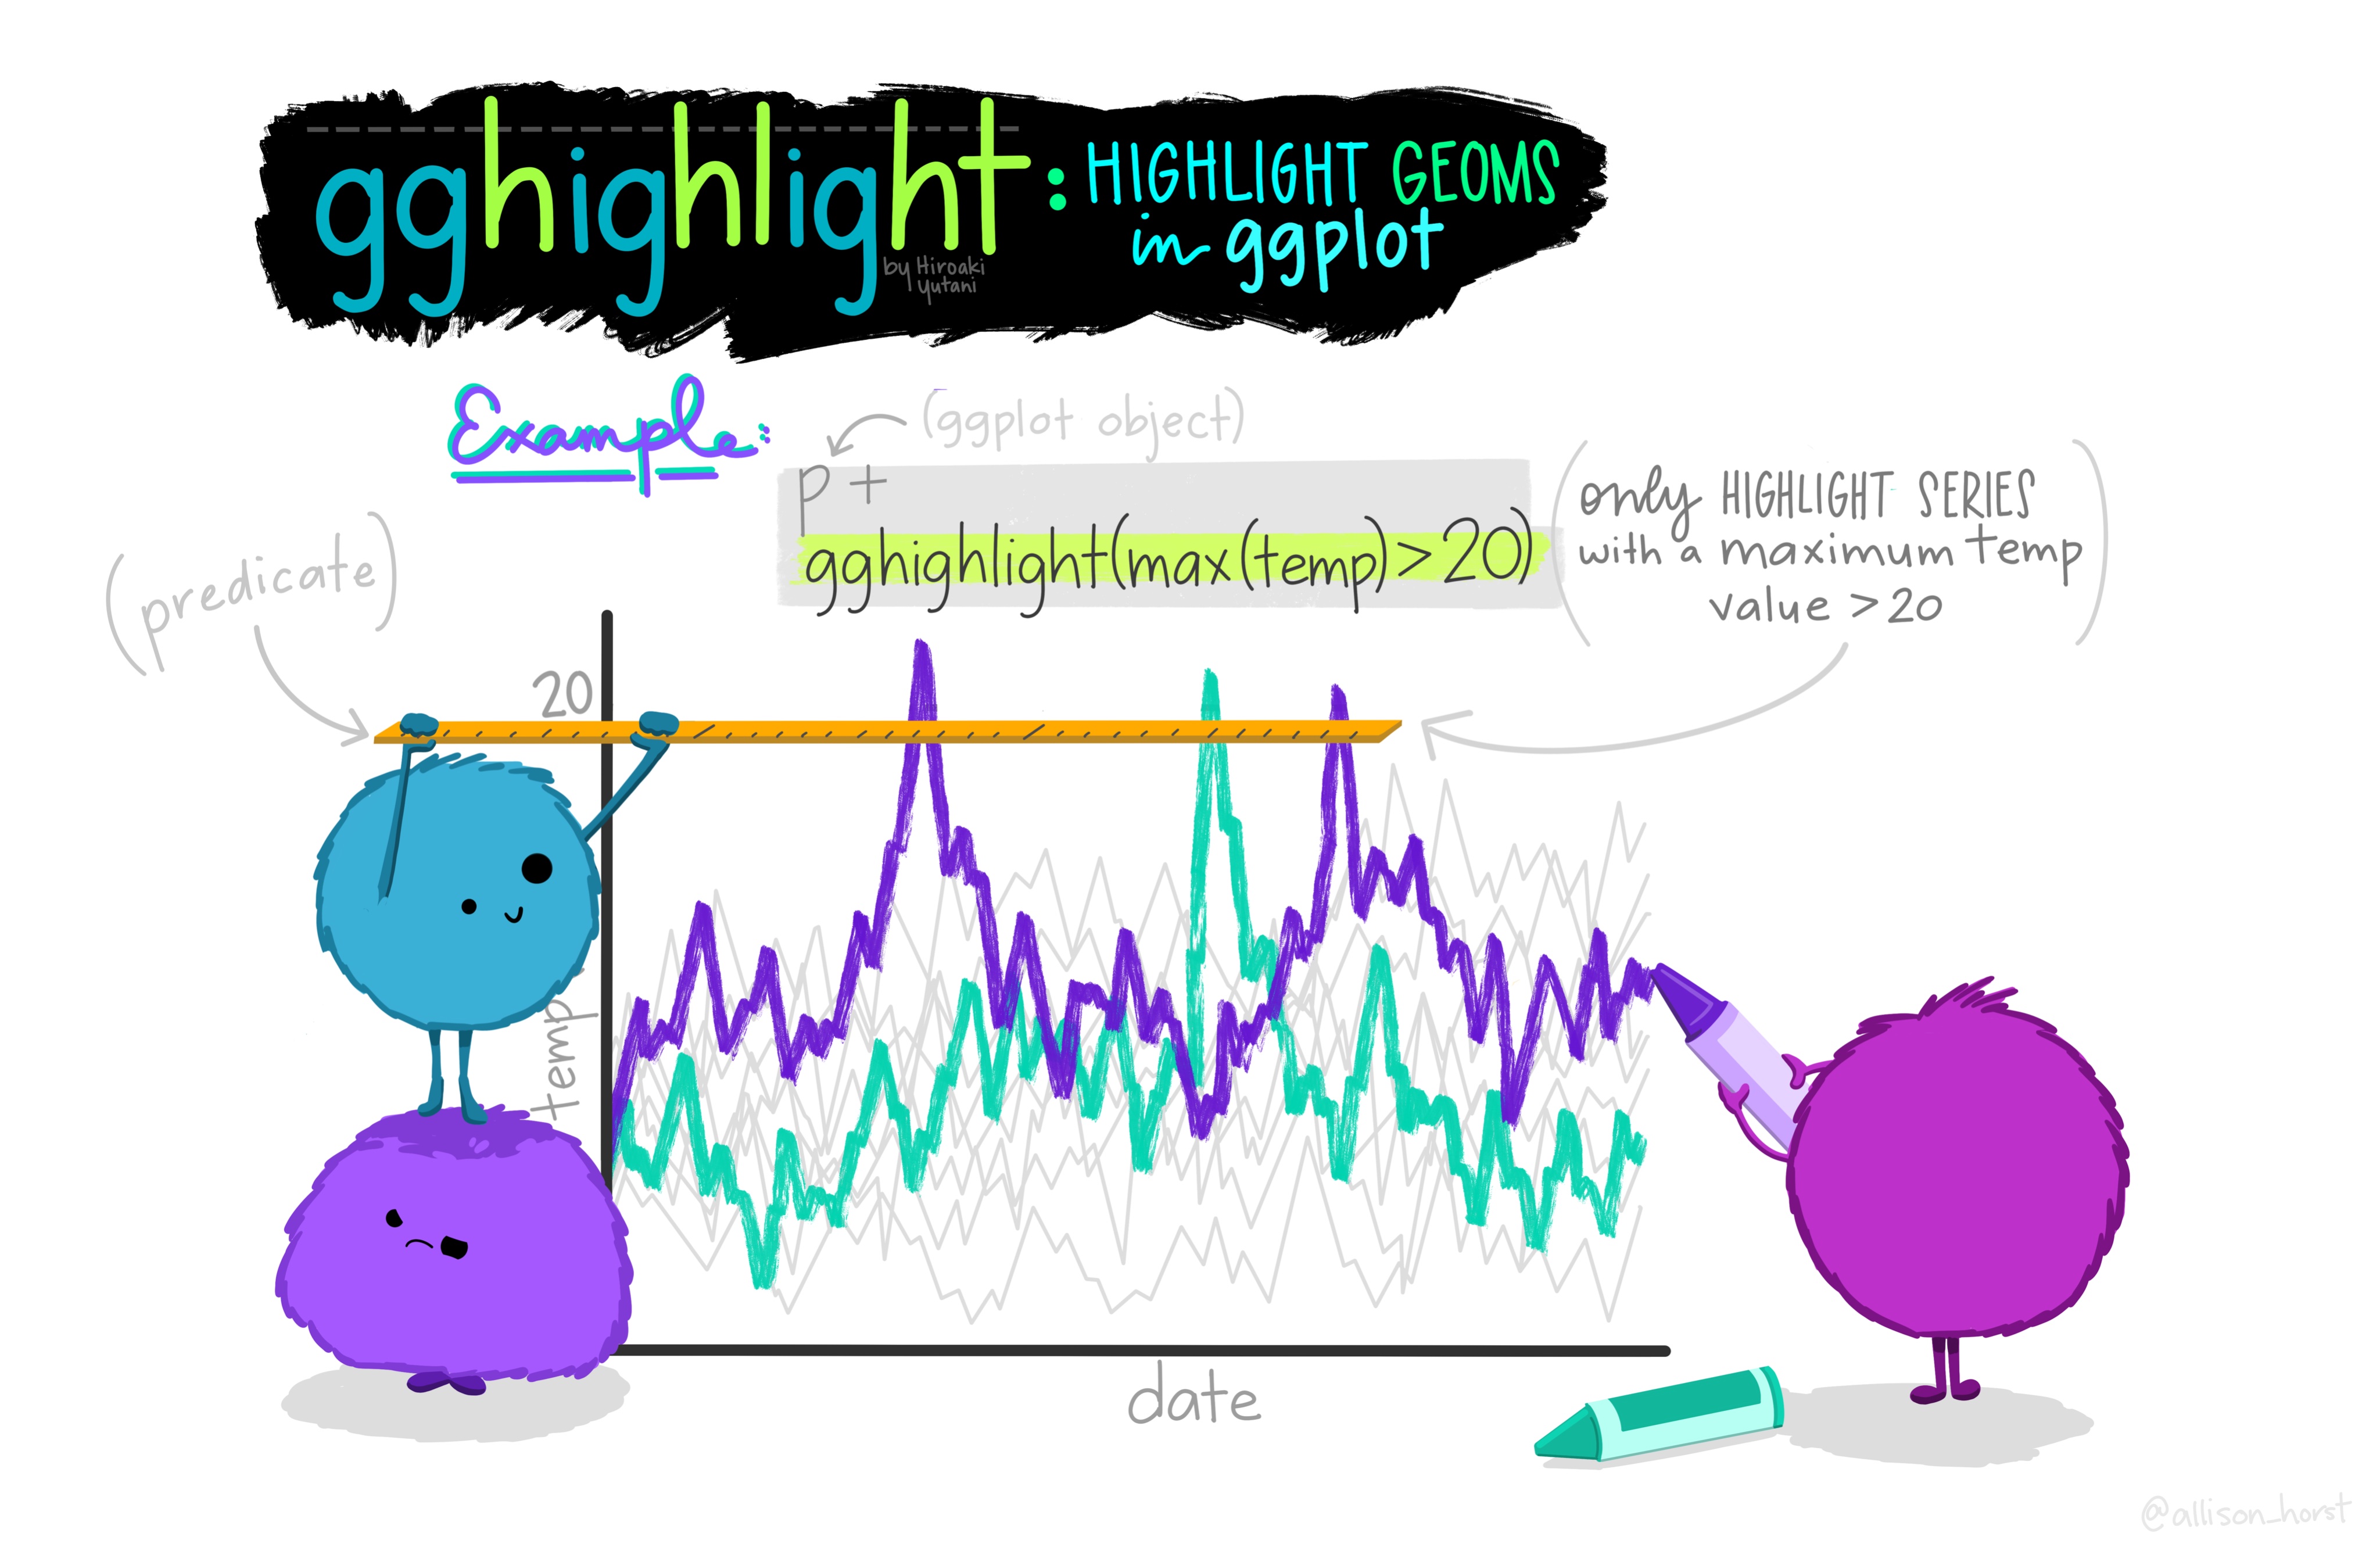 gghighlight: HIGHLIGHT GEOMS
in ggplot
by Hiroaki
Yutani
Example:
(ggplot object)
p +
gghighlight(max(temp)>20)
(only HIGHLIGHT SERIES
with a maximum temp
value >20)
(predicate)
20
temp
date
@allison_horst